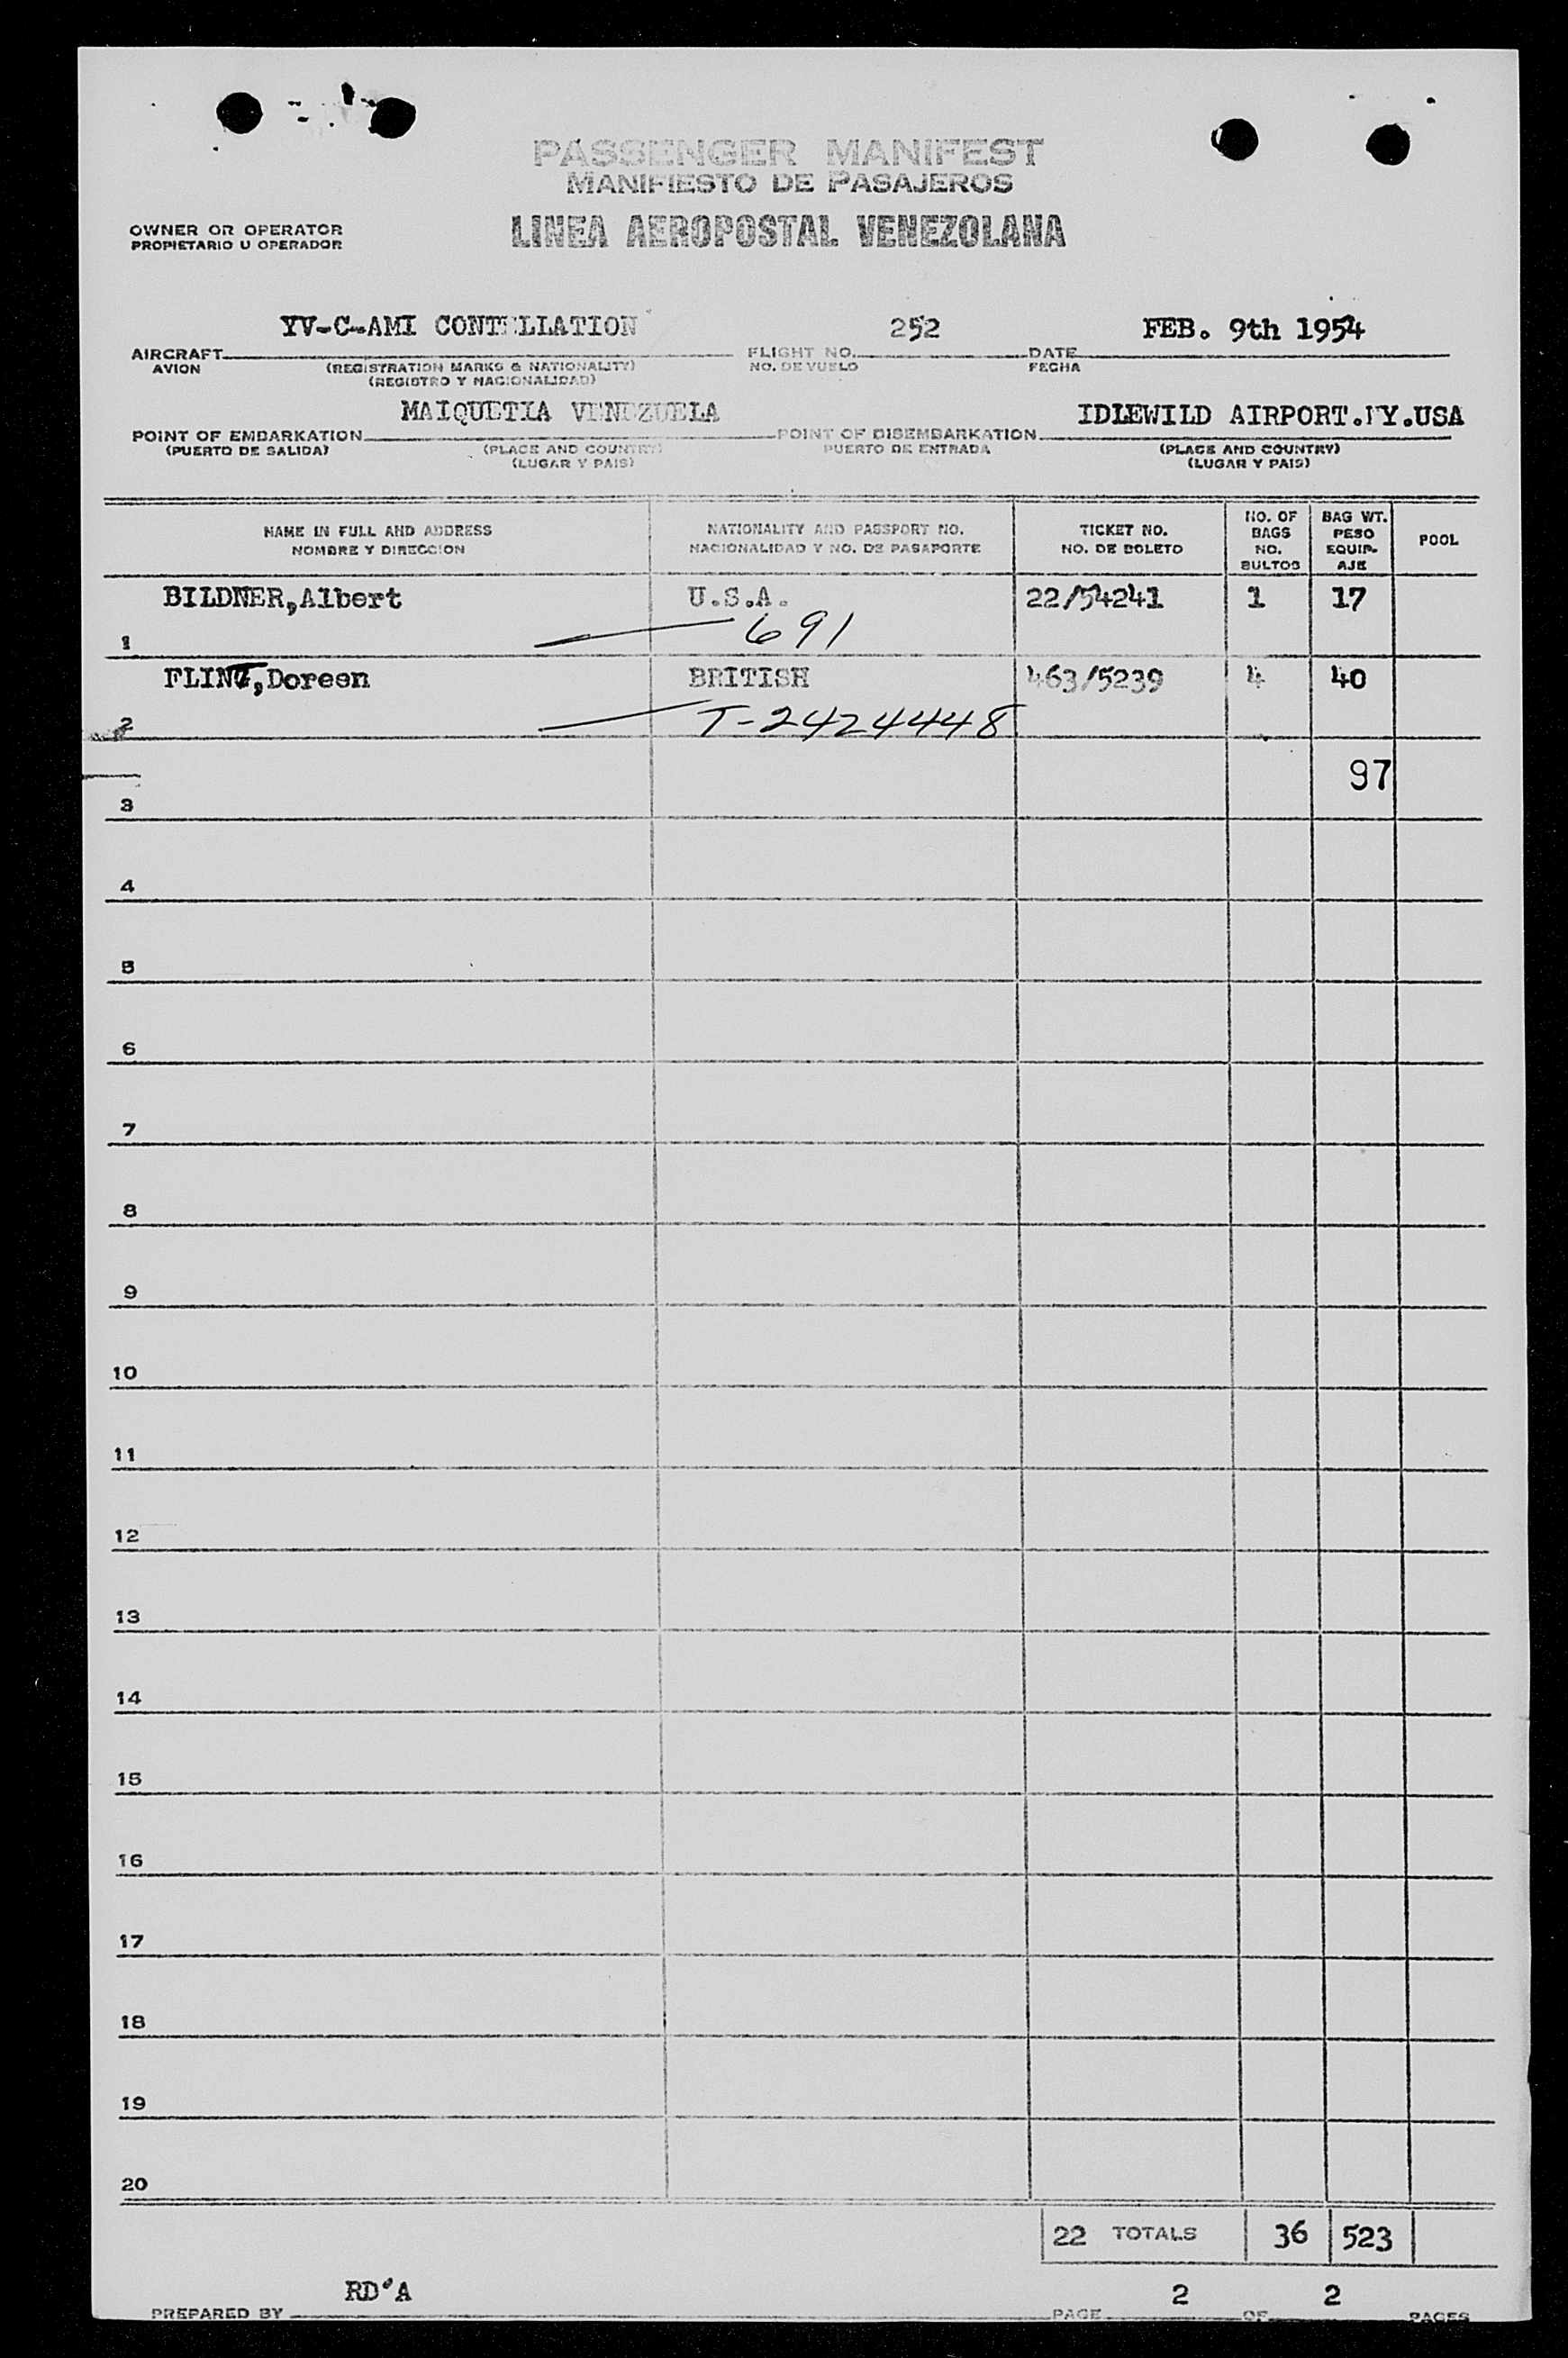 PASSENGER MANIFEST
MANIFIESTO DE PASAJEROS
OWNER OR OPERATOR
PROPIETARIO U OPERADOR
LINEA AEROPOSTAL VENEZOLANA
YV-C-AMI CONTELLATION 252 FEB. 9th 1954
AIRCRAFT FLIGHT NO. DATE
AVION (REGISTRATION MARKS & NATIONALITY) NO. DE VUELO FECHA
(REGISTRO Y NACIONALIDAD)
MAIQUETIA VENEZUELA IDLEWILD AIRPORT.NY.USA
POINT OF EMBARKATION POINT OF DISEMBARKATION
(PUERTO DE SALIDA) (PLACE AND COUNTRY) PUERTO DE ENTRADA (PLACE AND COUNTRY)
(LUGAR Y PAIS) (LUGAR Y PAIS)
NAME IN FULL AND ADDRESS
NOMBRE Y DIRECCION
NATIONALITY AND PASSPORT NO.
NACIONALIDAD Y NO. DE PASAPORTE
TICKET NO.
NO. DE BOLETO
NO. OF
BAGS
NO.
BULTOS
BAG WT.
PESO
EQUIP-
AJE
POOL
BILDNER,Albert U.S.A. 22/54241 1 17
1 691
FLINT,Doreen BRITISH 463/5239 4 40
2 T-2424448
97
3
4
5
6
7
8
9
10
11
12
13
14
15
16
17
18
19
20
22 TOTALS 36 523
RD'A 2 2
PREPARED BY PAGE OF PAGES